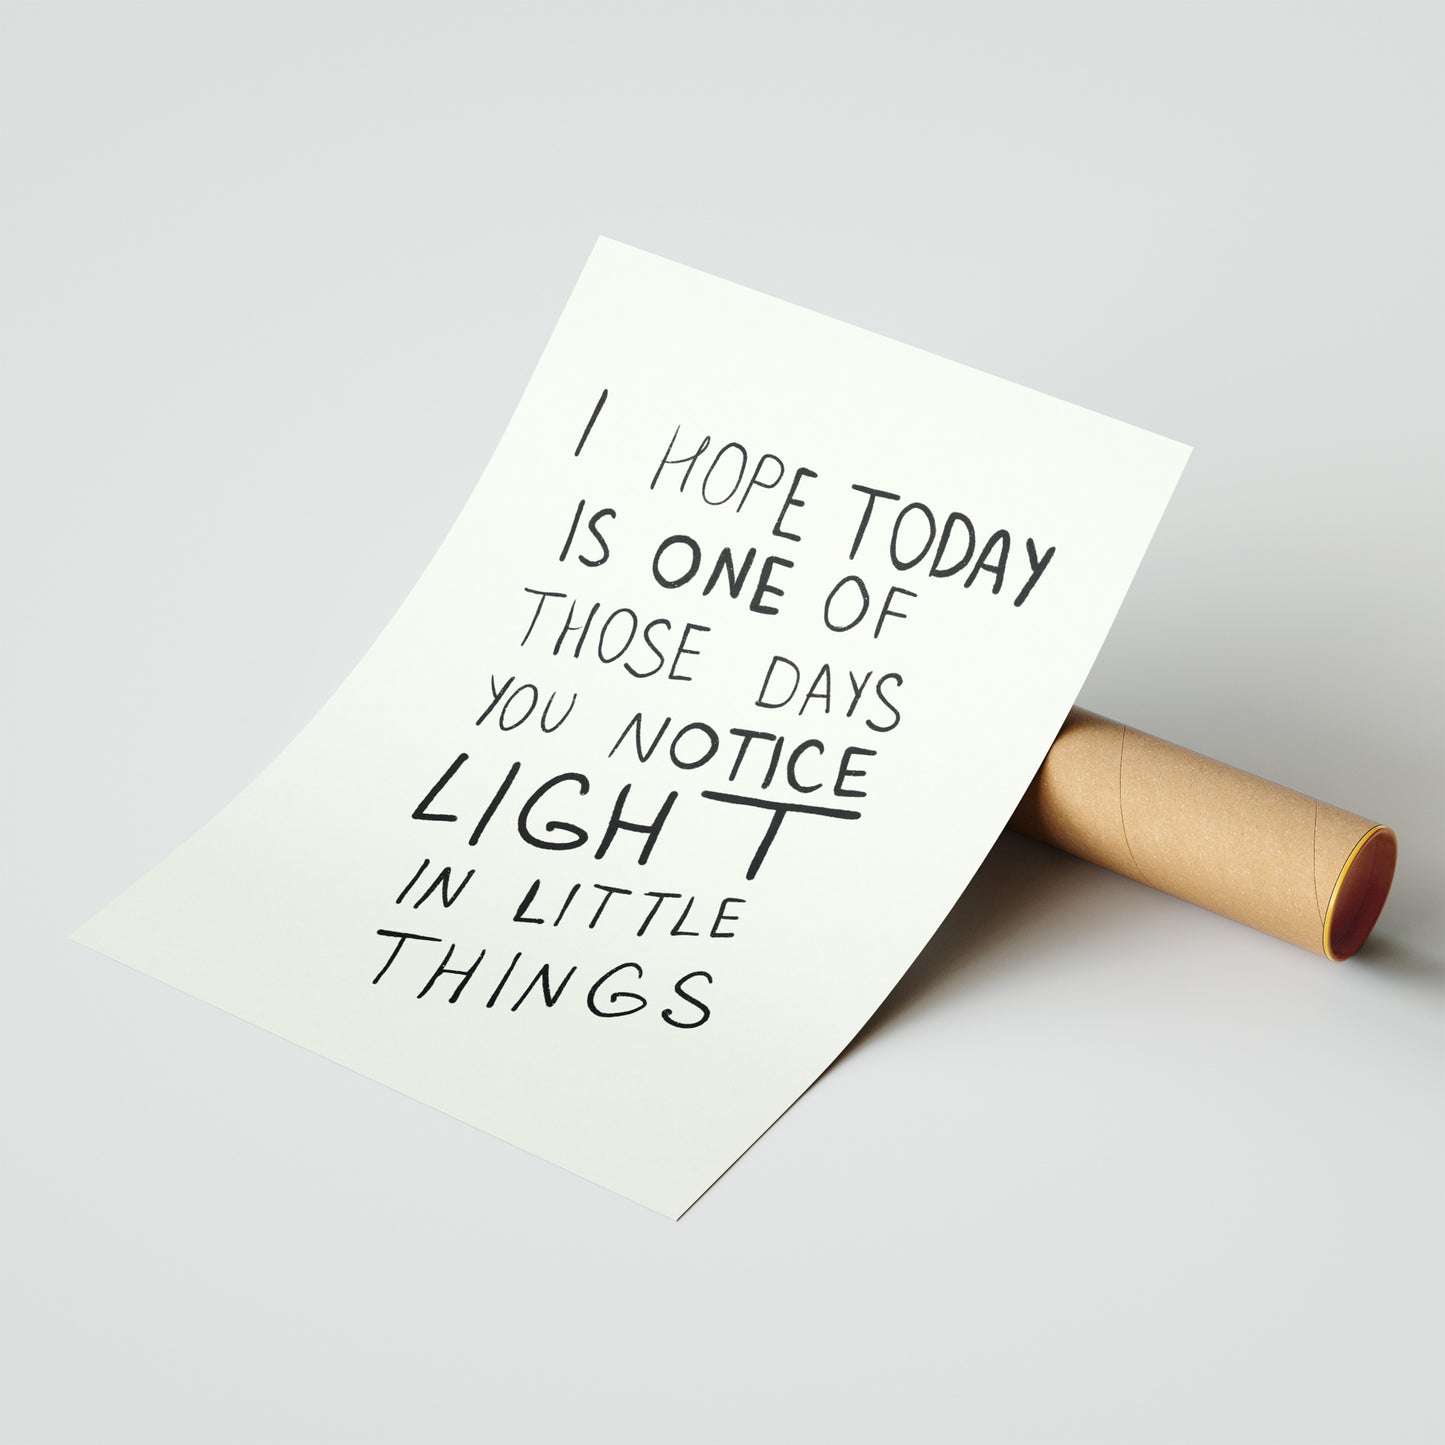 I HOPE TODAY
IS ONE OF
THOSE DAYS
YOU NOTICE
LIGHT
IN LITTLE
THINGS